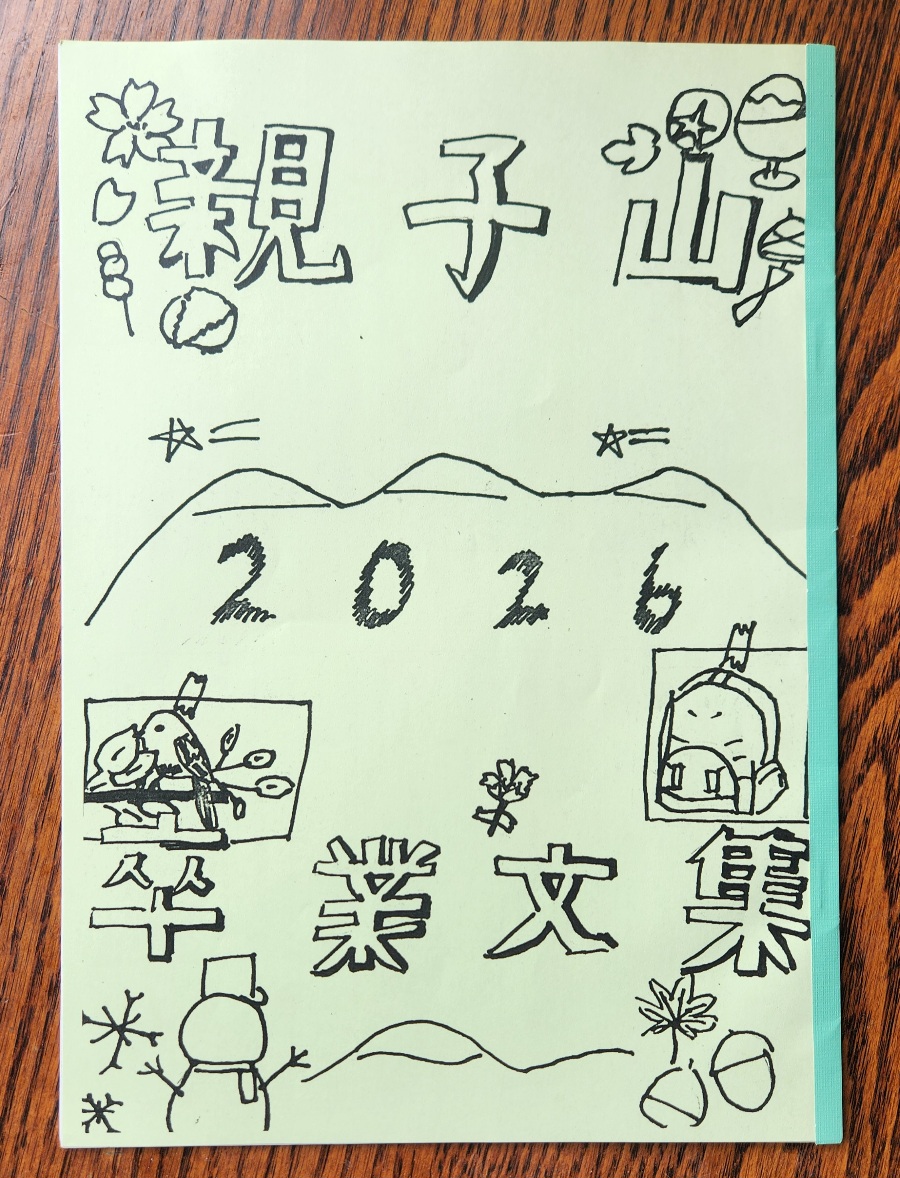 親子山
2026
卒業文集